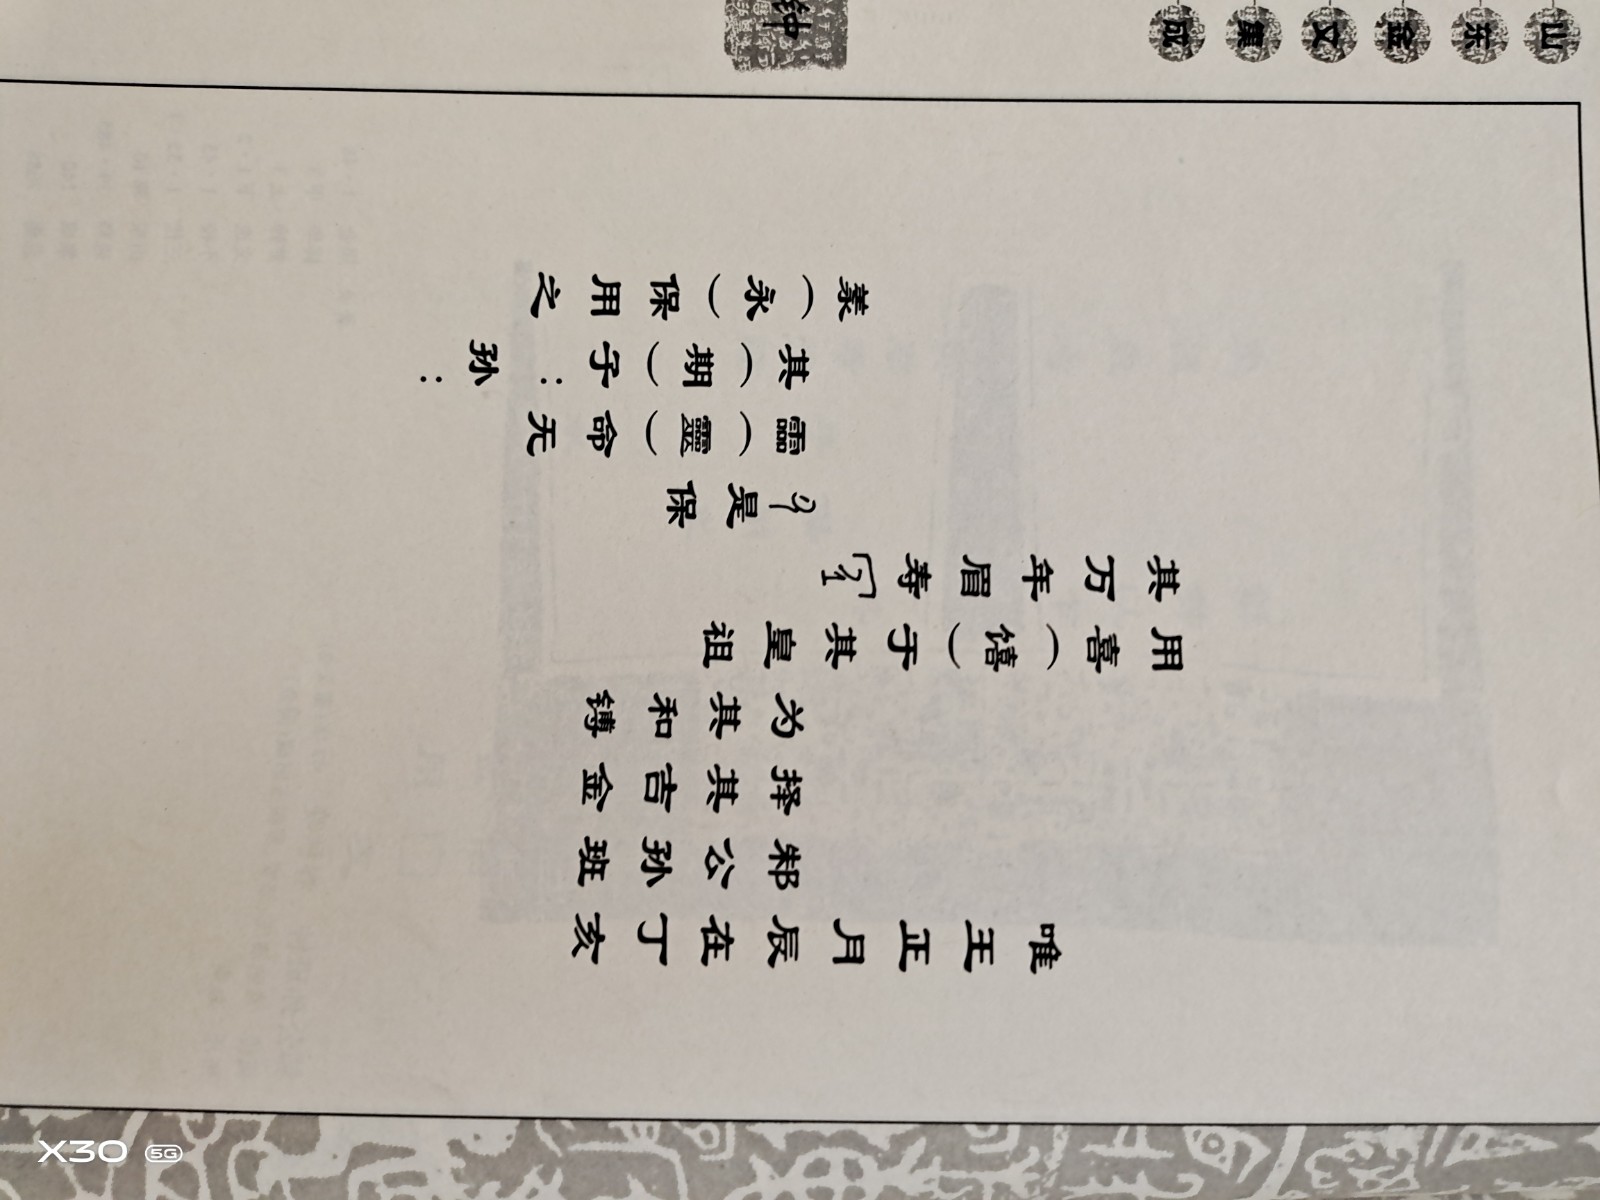 山东金文集成
钟
唯王正月辰在丁亥
邾公孙班
择其吉金
为其和镈
用喜（𫗴）于其皇祖
其万年眉寿
是保
霝（靈）命无
其（期）子：孙：
羕（永）保用之
X30 5G